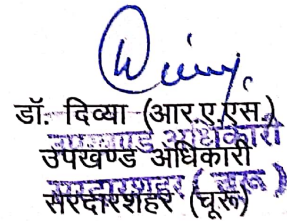 डॉ. दिव्या (आर.ए.एस.)
उपखण्ड अधिकारी
उपखण्ड अधिकारी
सरदारशहर (चूरू)
सरदारशहर (चूरू)